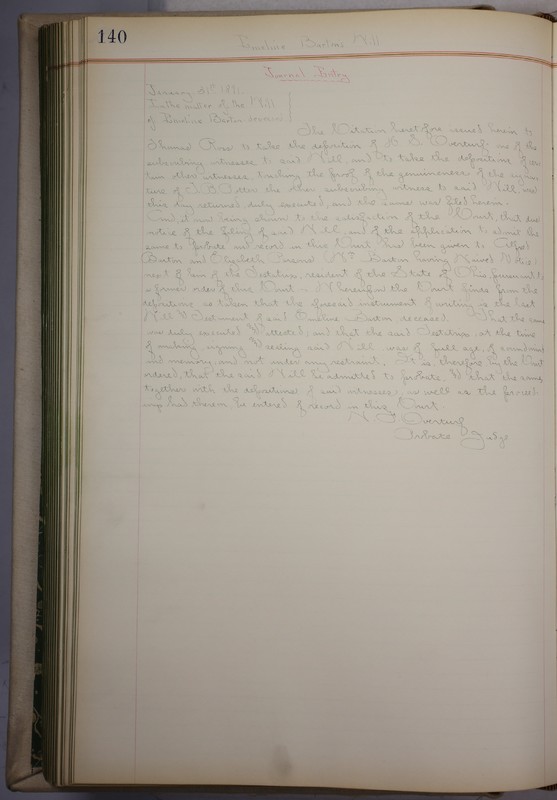 140
Emeline Bartons Will
Journal Entry
January 31st 1891
In the matter of the Will
of Emeline Barton deceased
The Citation heretofore issued herein to
Thomas Ross to take the deposition of H. E. Overturf one of the
subscribing witnesses to said Will, and to take the depositions of
two other witnesses touching the proof of the genuineness of the signa-
ture of J. B. the other subscribing witness to said Will, was
this day returned duly executed, and the same was filed herein.
And, it now being shown to the satisfaction of the Court, that due
notice of the filing of said Will, and of the application to admit the
same to probate and record in this Court has been given to
Barton and Elizabeth Barton having waived Notice
next of kin of the Testatrix, resident of the State of Ohio, pursuant to
a former order of this Court. Whereupon the Court finds from the
depositions so taken that the foresaid instrument of writing is the last
Will & Testament of said Emeline Barton, deceased. That the same
was duly executed & attested; and that the said Testatrix, at the time
of making, signing & sealing said Will was of full age, of sound mind
and memory, and not under any restraint. It is, therefore, by the Court
ordered, that the said Will be admitted to probate, & that the same,
together with the depositions of said witnesses, as well as the proceed-
ings had therein be entered of record in this Court.
Overturf
Probate Judge